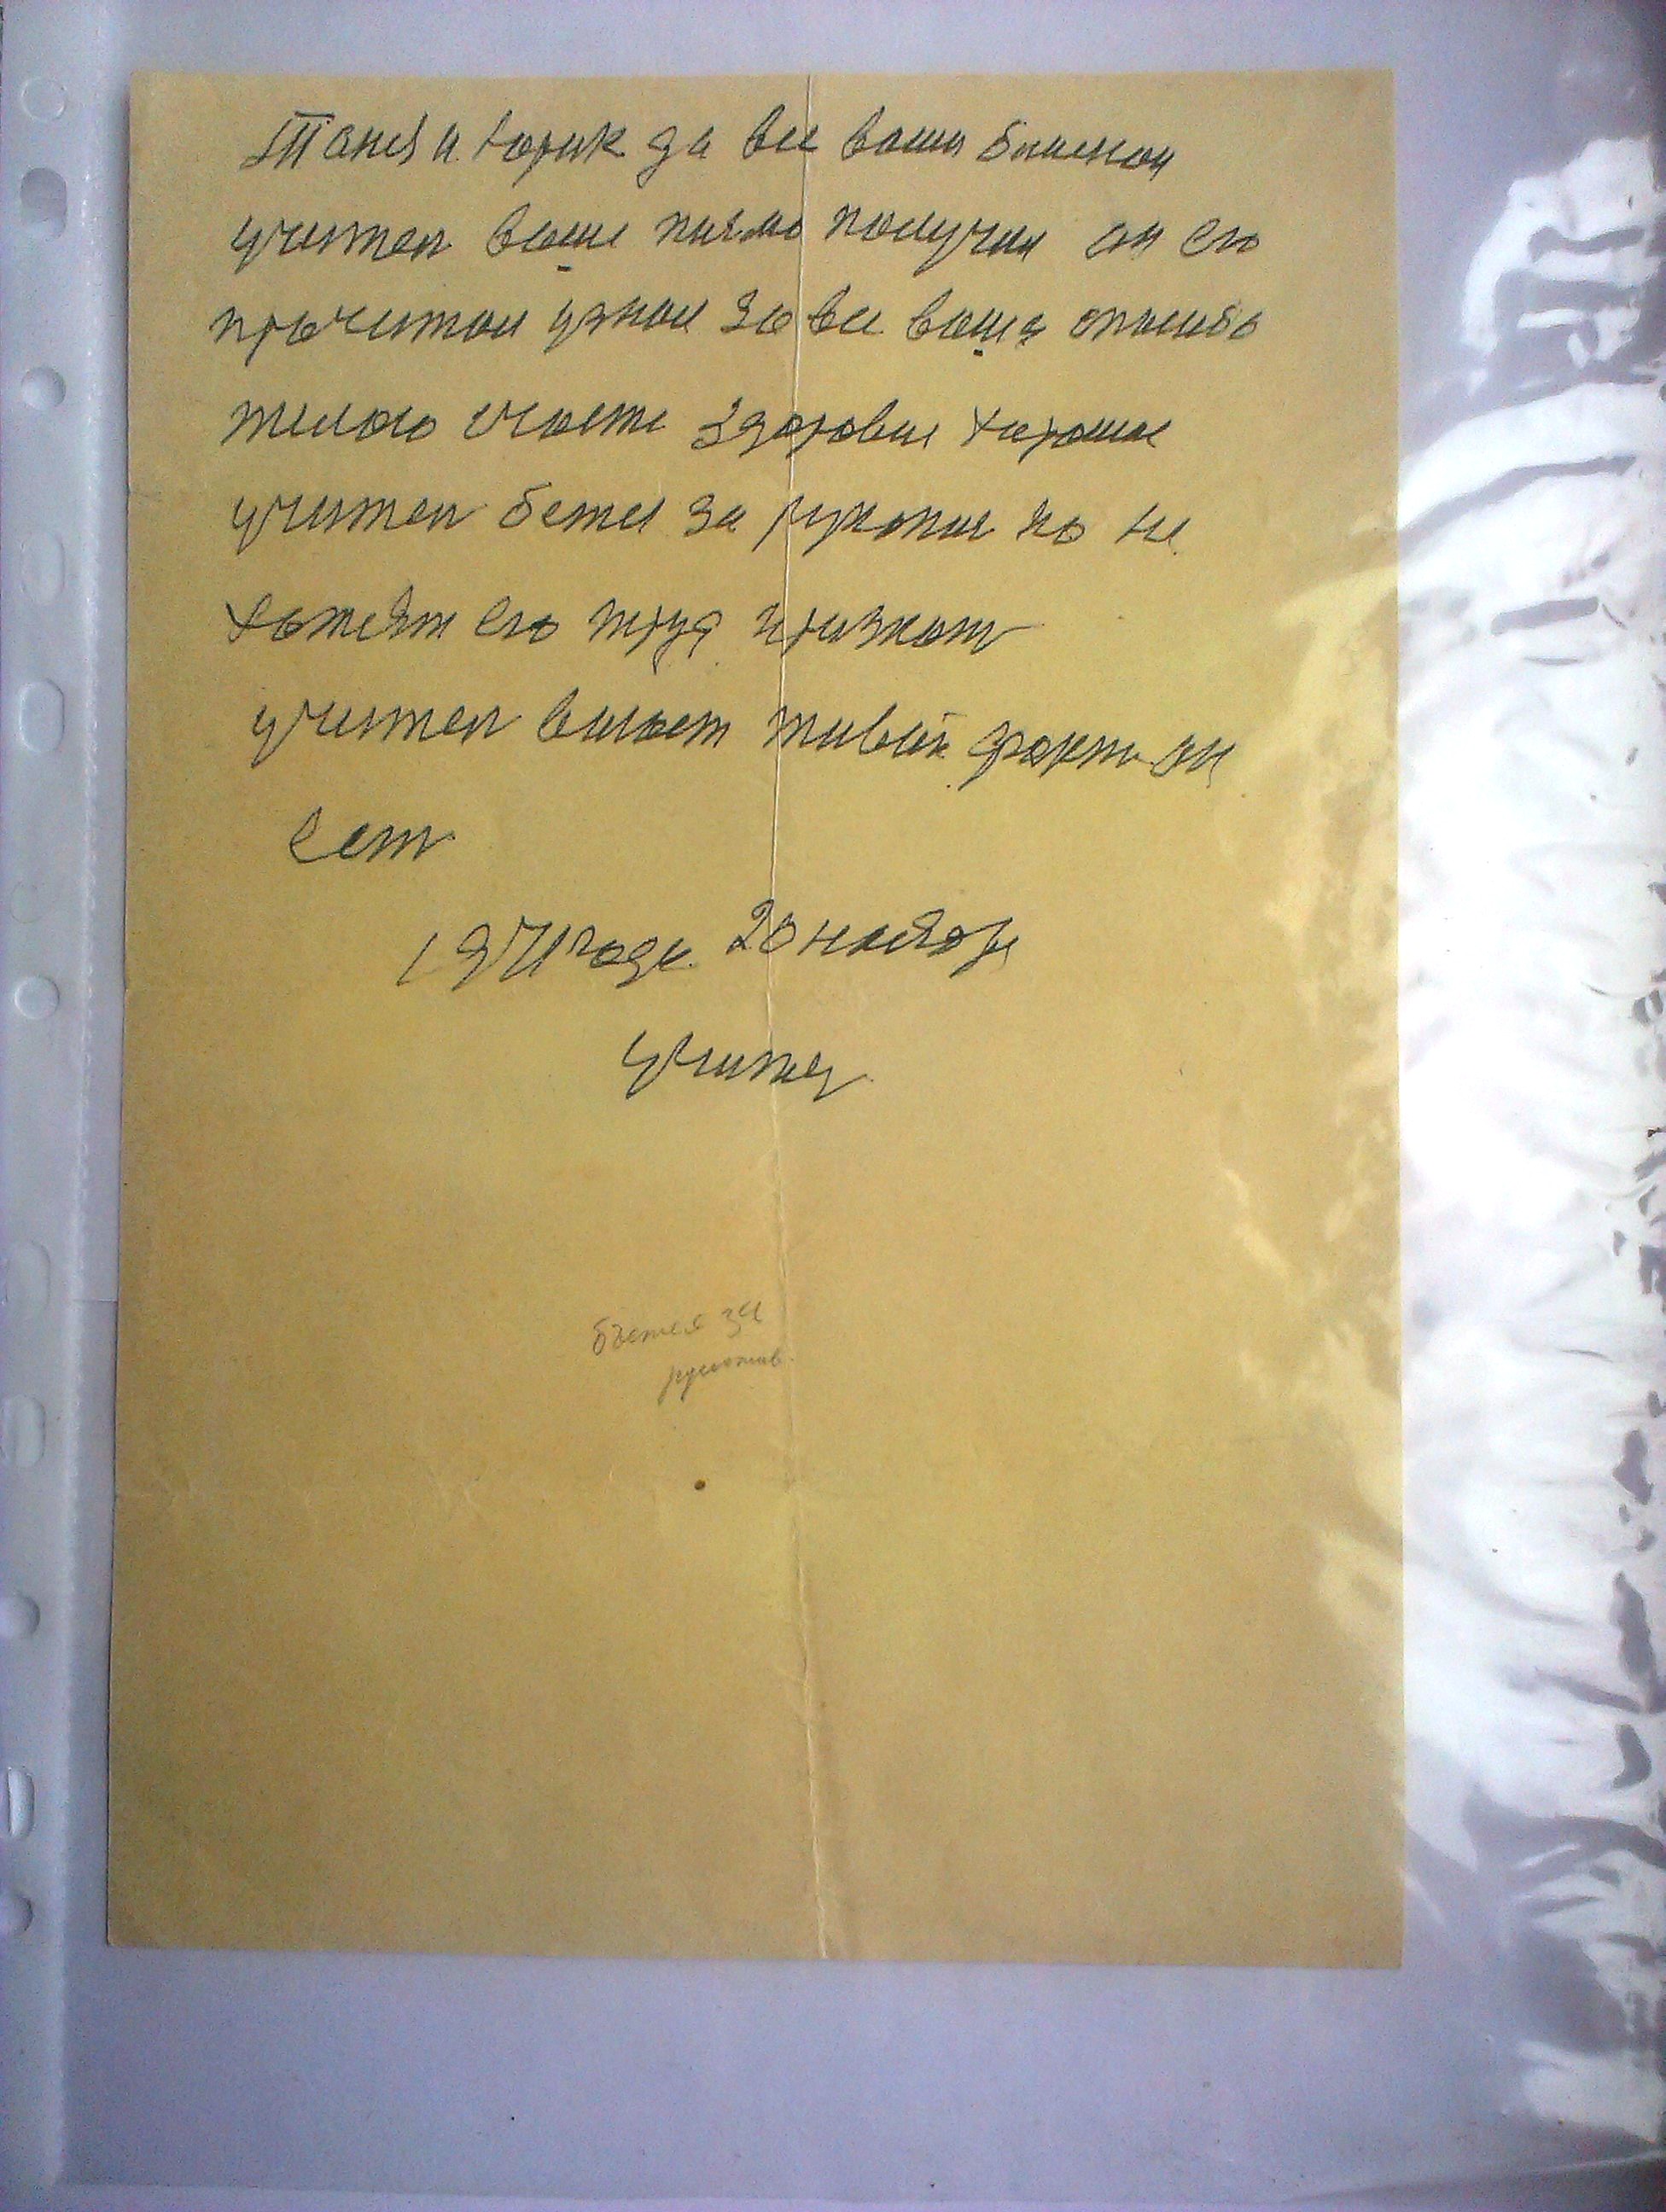 Таня и Юрик да все ваши
учител ваше писмо получил он его
прочитал узнал за все ваше спасибо
желаю счасте здоровие хорошие
учител бетея за рукопи но не
хотят его труд признат
учител висает живой факт он
Ест
1971 года 20 ноября
учител
бъется за
рукопись